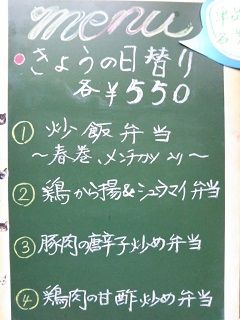 menu
きょうの日替り
各￥550
① 炒飯弁当
～春巻、メンチカツ入り～
② 鶏から揚&シュウマイ弁当
③ 豚肉の唐辛子炒め弁当
④ 鶏肉の甘酢炒め弁当